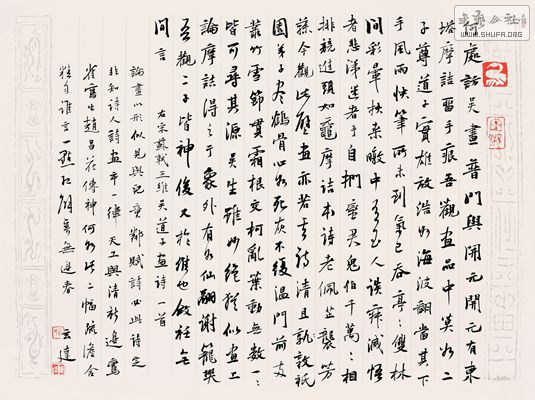 何處訪吳畫普門與開元開元有東
塔摩詰留手痕吾觀畫品中莫如二
子尊道子實雄放浩如海波翻當其下
手風雨快筆所未到氣已吞亭〻雙林
間彩暈扶桑暾中有至人談寂滅悟
者悲涕迷者手自捫蠻君鬼伯千萬〻相
排競進頭如黿摩詰本詩老佩芷襲芳
蓀今觀此壁畫亦若其詩清且敦祇
園弟子盡鶴骨心如死灰不復溫門前兩
叢竹雪節貫霜根交柯亂葉動無數一〻
皆可尋其源吳生雖妙絕猶以畫工
論摩詰得之于象外有如仙翮謝籠樊
吾觀二子皆神俊又於維也斂衽無
間言 右宋蘇軾王維吳道子畫詩一首
論畫以形似見與兒童鄰賦詩必此詩定
非知詩人詩畫本一律天工與清新邊鸞
雀寫生趙昌花傳神何如此二幅疏澹含
精勻誰言一點紅解寄無邊春 云建
WWW.SHUFA.ORG